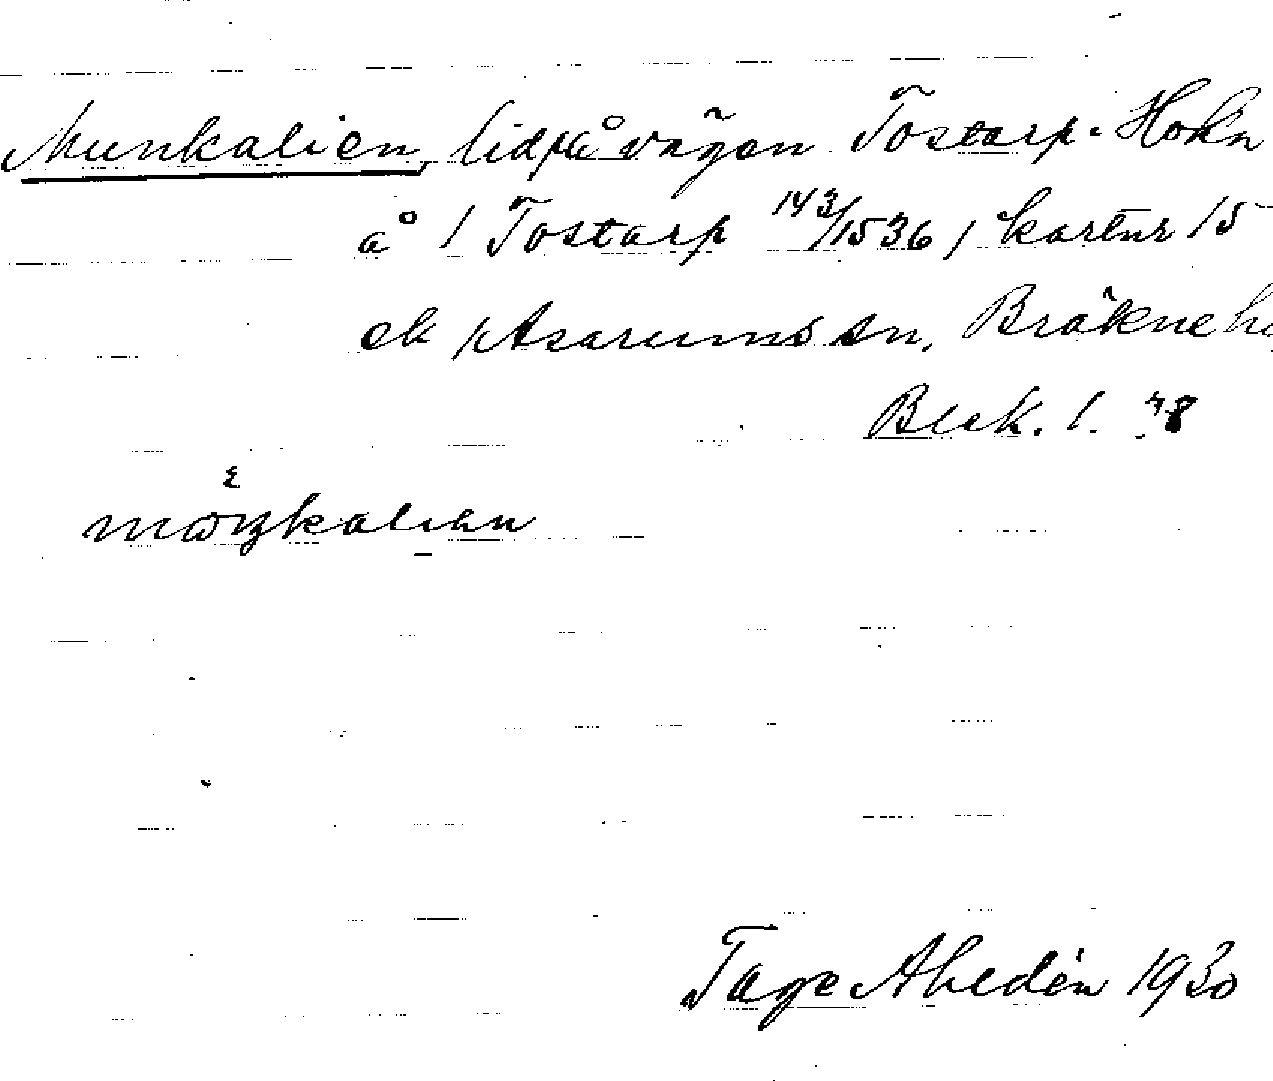 Munkalien, lid på vägen Tostarp-Hokn
å 1 Tostarp 143/1536, kartnr 15
ek, Asarums sn, Bräkne h
Blek. l. 48
Tage Ahledén 1930